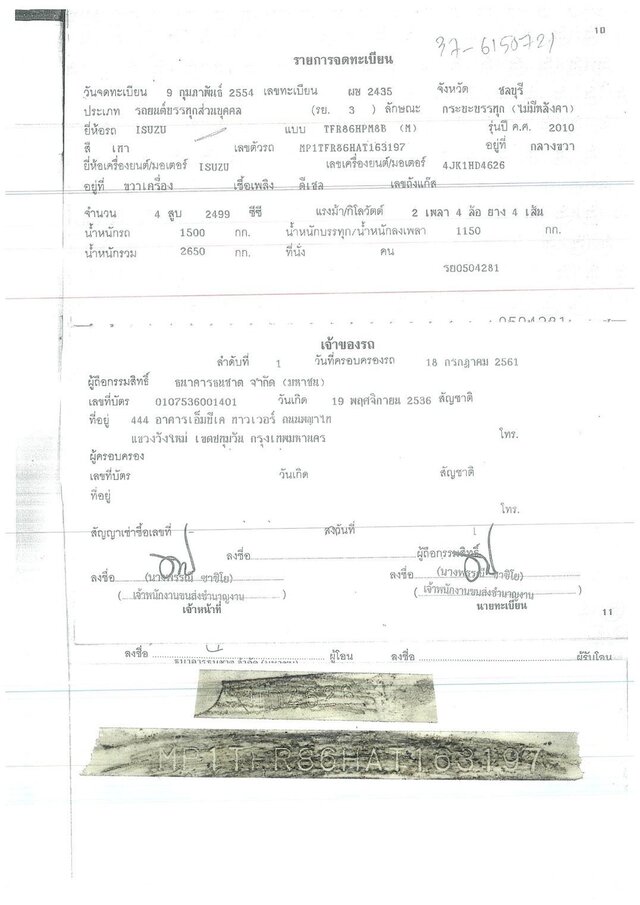 10
37-6150721
รายการจดทะเบียน
วันจดทะเบียน 9 กุมภาพันธ์ 2554 เลขทะเบียน ผข 2435 จังหวัด ชลบุรี
ประเภท รถยนต์บรรทุกส่วนบุคคล (รย. 3 ) ลักษณะ กระบะบรรทุก (ไม่มีหลังคา)
ยี่ห้อรถ ISUZU แบบ TFR86HPM8B (M) รุ่นปี ค.ศ. 2010
สี เทา เลขตัวรถ MP1TFR86HAT163197 อยู่ที่ กลางขวา
ยี่ห้อเครื่องยนต์/มอเตอร์ ISUZU เลขเครื่องยนต์/มอเตอร์ 4JK1HD4626
อยู่ที่ ขวาเครื่อง เชื้อเพลิง ดีเซล เลขถังแก๊ส
จำนวน 4 สูบ 2499 ซีซี แรงม้า/กิโลวัตต์ 2 เพลา 4 ล้อ ยาง 4 เส้น
น้ำหนักรถ 1500 กก. น้ำหนักบรรทุก/น้ำหนักลงเพลา 1150 กก.
น้ำหนักรวม 2650 กก. ที่นั่ง คน
รย0504281
เจ้าของรถ
ลำดับที่ 1 วันที่ครอบครองรถ 18 กรกฎาคม 2561
ผู้ถือกรรมสิทธิ์ ธนาคารธนชาต จำกัด (มหาชน)
เลขที่บัตร 0107536001401 วันเกิด 19 พฤศจิกายน 2536 สัญชาติ
ที่อยู่ 444 อาคารเอ็มบีเค ทาวเวอร์ ถนนพญาไท
แขวงวังใหม่ เขตปทุมวัน กรุงเทพมหานคร โทร.
ผู้ครอบครอง
เลขที่บัตร วันเกิด สัญชาติ
ที่อยู่
โทร.
สัญญาเช่าซื้อเลขที่ - ลงวันที่
ลงชื่อ ผู้ถือกรรมสิทธิ์
ลงชื่อ ลงชื่อ
( เจ้าพนักงานขนส่งชำนาญงาน ) ( เจ้าพนักงานขนส่งชำนาญงาน )
เจ้าหน้าที่ นายทะเบียน
11
ลงชื่อ ผู้โอน ลงชื่อ ผู้รับโอน
MP1TFR86HAT163197